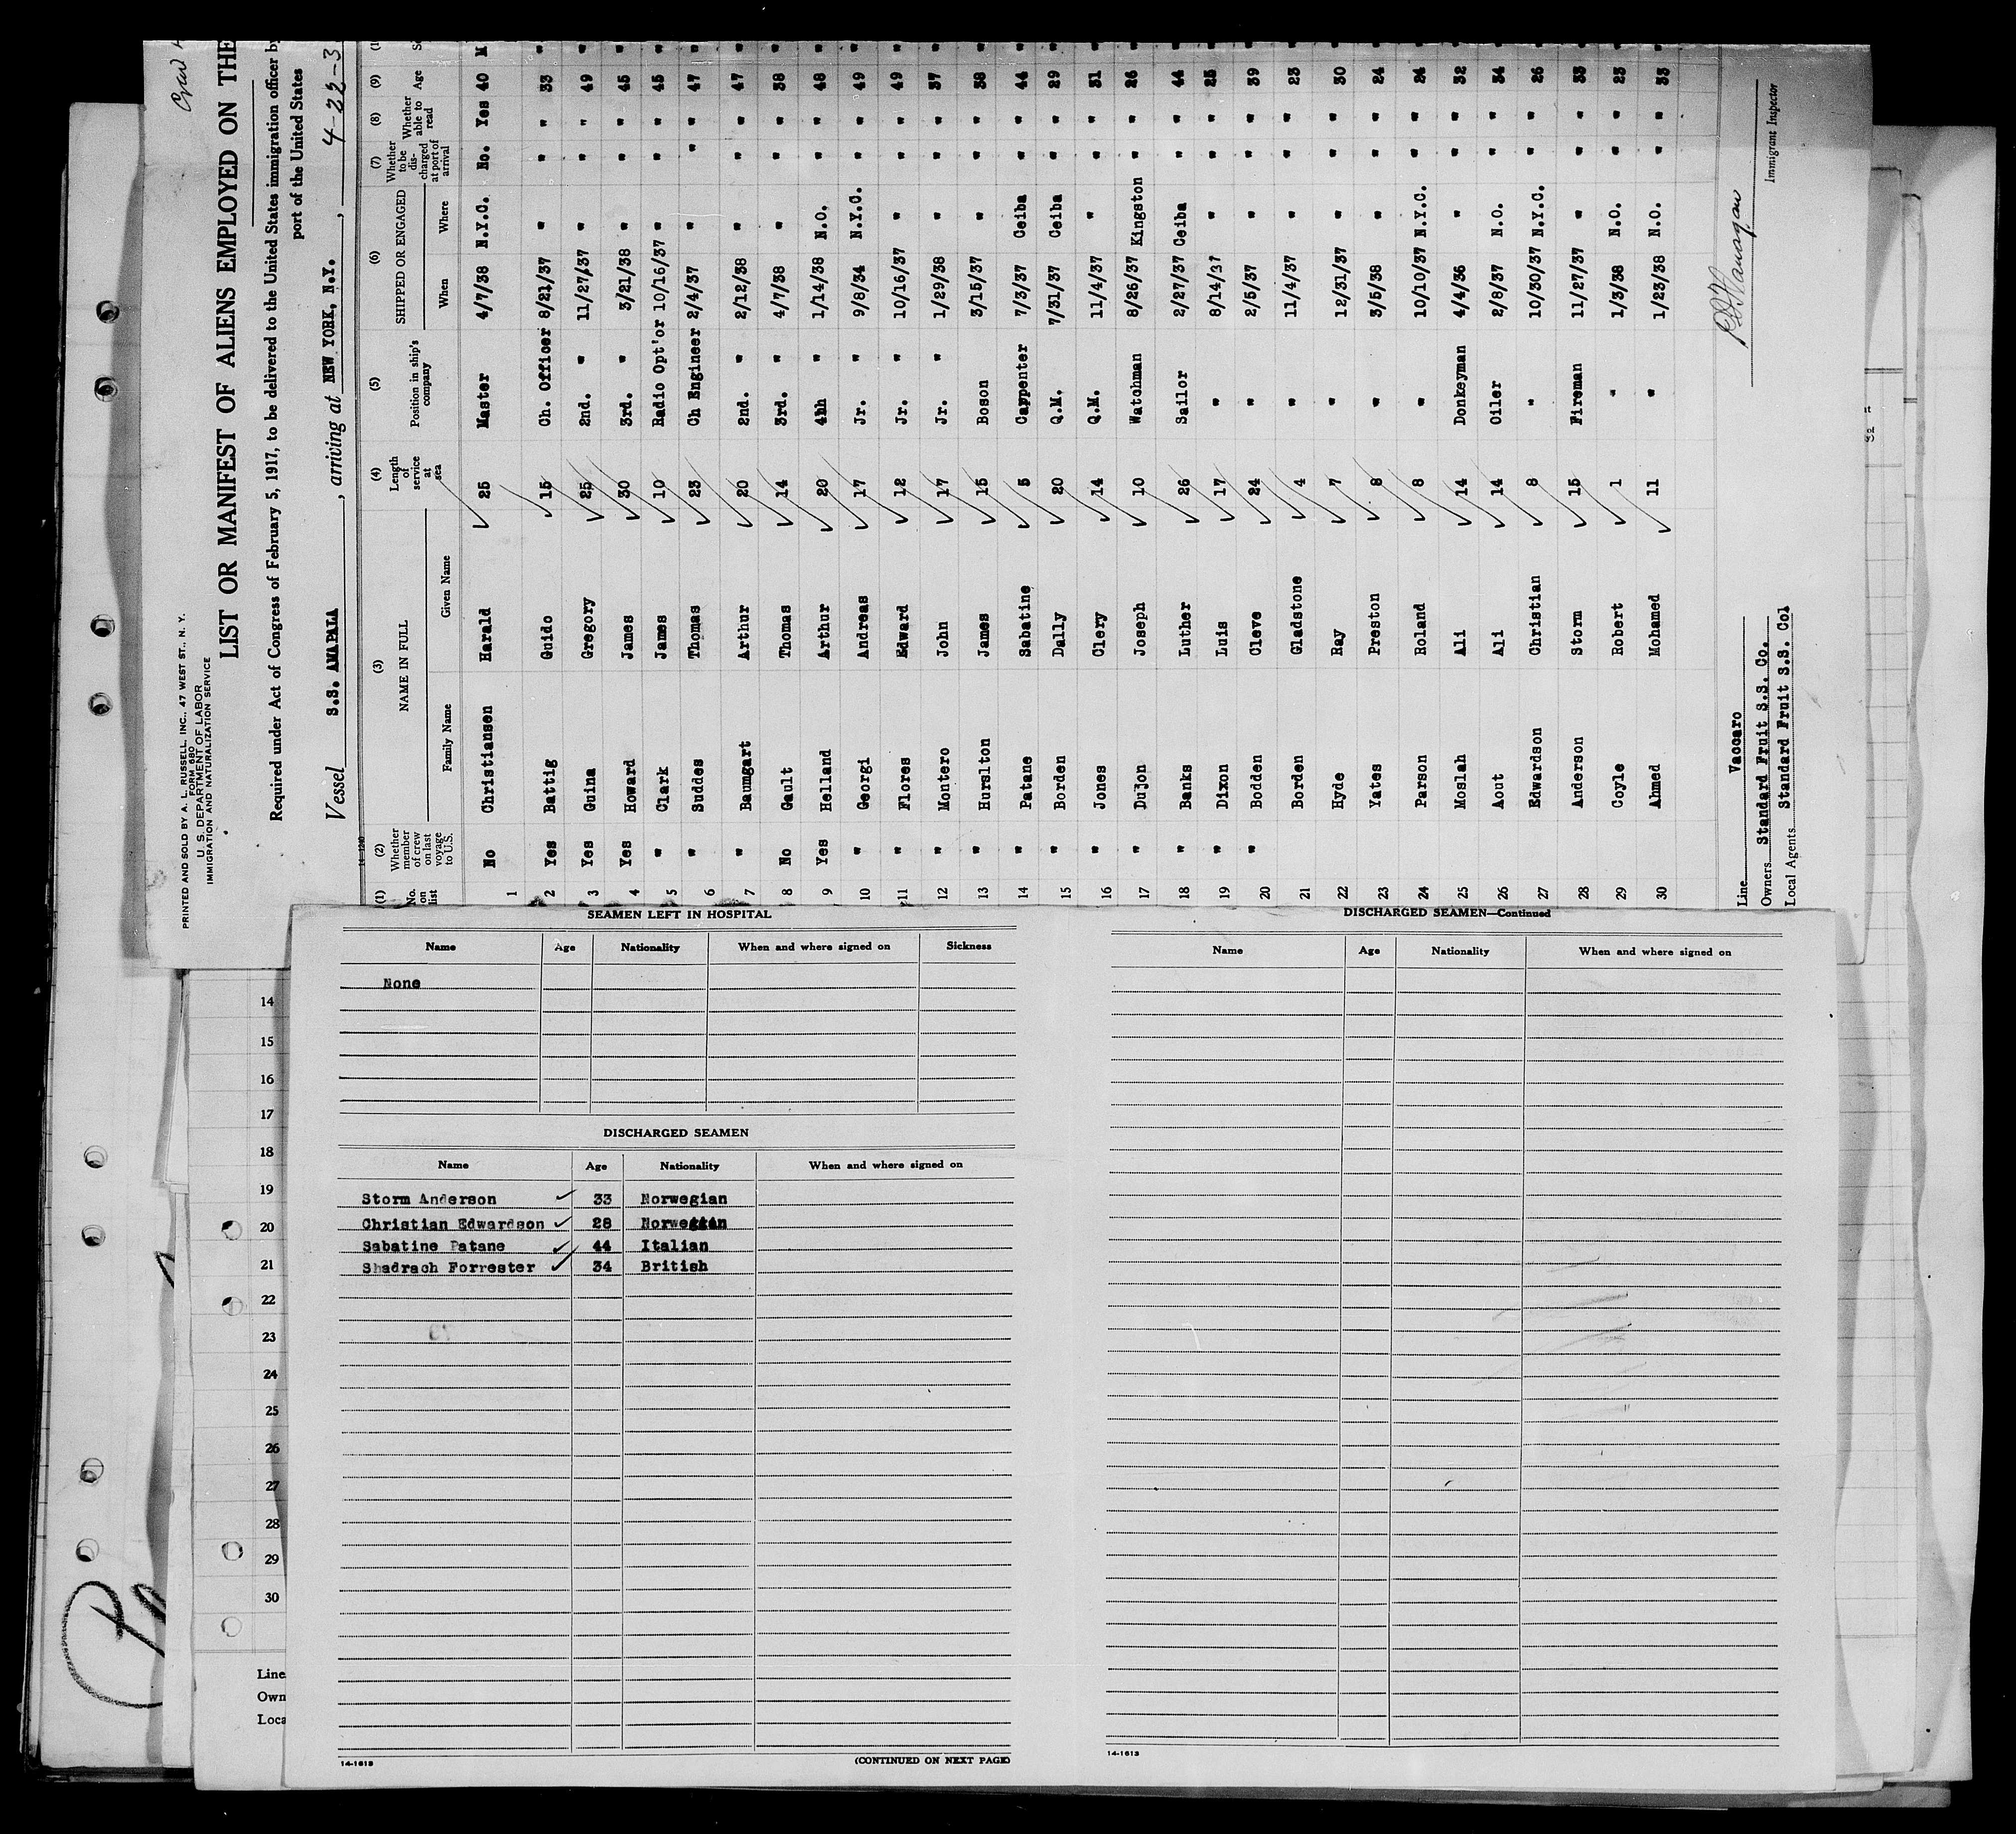 PRINTED AND SOLD BY A. L. RUSSELL, INC., 47 WEST ST., N. Y.
FORM 680
U. S. DEPARTMENT OF LABOR
IMMIGRATION AND NATURALIZATION SERVICE
LIST OR MANIFEST OF ALIENS EMPLOYED ON THE
Required under Act of Congress of February 5, 1917, to be delivered to the United States immigration officer by
port of the United States
Vessel S.S. AMAPALA, arriving at NEW YORK, N.Y., 4-22-3
(1) (2) (3) (4) (5) (6) (7) (8) (9)
No. on list Whether member of crew on last voyage to U.S. NAME IN FULL Length of service at sea Position in ship's company SHIPPED OR ENGAGED Whether to be discharged at port of arrival Whether able to read Age
Family Name Given Name When Where
1 No Christiansen Harald 25 Master 4/7/38 N.Y.C. No. Yes 40 M
2 Yes Battig Guido 15 Ch. Officer 8/21/37 " " " 33 "
3 Yes Guina Gregory 25 2nd. " 11/27/37 " " " 49 "
4 Yes Howard James 30 3rd. " 3/21/38 " " " 45 "
5 " Clark James 10 Radio Opt'or 10/16/37 " " " 45 "
6 " Suddes Thomas 23 Ch Engineer 2/4/37 " " " 47 "
7 " Baumgart Arthur 20 2nd. " 2/12/38 " " " 47 "
8 No Gault Thomas 14 3rd. " 4/7/38 " " " 38 "
9 Yes Holland Arthur 20 4hh " 1/14/38 N.O. " " 48 "
10 " Georgi Andreas 17 Jr. " 9/8/34 N.Y.C. " " 49 "
11 " Flores Edward 12 Jr. " 10/16/37 " " " 49 "
12 " Montero John 17 Jr. " 1/29/38 " " " 37 "
13 " Hurslton James 15 Boson 3/15/37 " " " 38 "
14 " Patane Sabatine 5 Carpenter 7/3/37 Ceiba " " 44 "
15 " Borden Dally 20 Q.M. 7/31/37 Ceiba " " 29 "
16 " Jones Clery 14 Q.M. 11/4/37 " " " 31 "
17 " Dujon Joseph 10 Watchman 8/26/37 Kingston " " 26 "
18 " Banks Luther 26 Sailor 2/27/37 Ceiba " " 44 "
19 " Dixon Luis 17 " 8/14/37 " " " 25 "
20 " Bodden Cleve 24 " 2/5/37 " " " 39 "
21 Borden Gladstone 4 " 11/4/37 " " " 23 "
22 Hyde Ray 7 " 12/31/37 " " " 30 "
23 Yates Preston 8 " 3/5/38 " " " 24 "
24 Parson Roland 8 " 10/10/37 N.Y.C. " " 24 "
25 Moslah Ali 14 Donkeyman 4/4/36 " " " 32 "
26 Aout Ali 14 Oiler 2/8/37 N.O. " " 34 "
27 Edwardson Christian 8 " 10/30/37 N.Y.C. " " 26 "
28 Anderson Storm 15 Fireman 11/27/37 " " " 33 "
29 Coyle Robert 1 " 1/3/38 N.O. " " 23 "
30 Ahmed Mohamed 11 " 1/23/38 N.O. " " 33 "
Line Vaccaro
Owners Standard Fruit S.S. Co.
Local Agents Standard Fruit S.S. Col
Immigrant Inspector
SEAMEN LEFT IN HOSPITAL
Name Age Nationality When and where signed on Sickness
None
DISCHARGED SEAMEN
Name Age Nationality When and where signed on
Storm Anderson 33 Norwegian
Christian Edwardson 28 Norwegian
Sabatine Patane 44 Italian
Shadrach Forrester 34 British
14-1613
(CONTINUED ON NEXT PAGE)
DISCHARGED SEAMEN—Continued
Name Age Nationality When and where signed on
14-1613
14
15
16
17
18
19
20
21
22
23
24
25
26
27
28
29
30
Line
Own
Loca